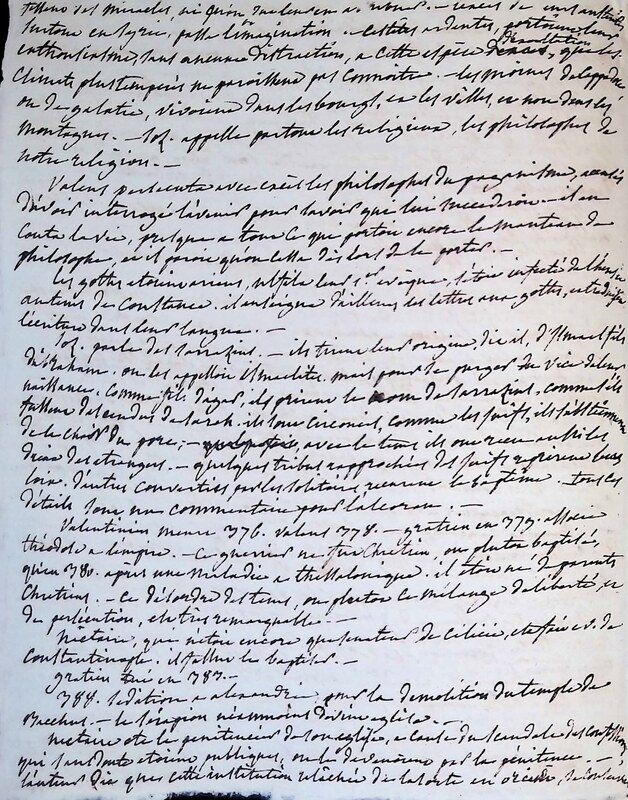 surtout en Syrie, passe l'imagination. — Ces têtes ardentes, portaient leur
enthousiasme, sans aucune distraction, a cette espèce que les
climats plus tempérés ne paroissent pas connoitre. — les moines de Cappadoce
ou de galatie, vivoient dans les bourgs, en les villes, et non dans les
montagnes. — Soz. appelle partout les religieux, les philosophes de
notre religion. —
Valens persécuta avec excès les philosophes du paganisme, accusés
d'avoir interrogé l'avenir pour savoir qui lui succedroit. — il en
couta la vie, presque a tous ce qui portoit encore le manteau de
philosophe, et il paroit qu'on cessa dès lors de le porter. —
Les goths etoient ariens, ulfila leur 1er évêque, s'étoit infecté de l'hérésie
au tems de Constance. il enseigna d'ailleurs les lettres aux goths, et traduisit
l'écriture dans leur langue. —
Soz. parle des sarrazins. — ils tirent leur origine, dit il, d'Ismael fils
d'Abraham. on les appelloit ismaelites, mais pour se purger du vice de leur
naissance, comme fils d'agar, ils prirent le nom de sarrazins, comme s'ils
fussent descendus de sarah. ils sont circoncis, comme les juifs, ils s'abstiennent
de la chair du porc; — avec le tems ils ont reçu aussi les
dieux des etrangers. — quelques tribus rapprochées des juifs reprirent leurs
loix. d'autres converties par les solitaires, reçurent le baptême. — tous ces
détails sont un commentaire pour le coran. —
Valentinien meurt 376. Valens 378. — gratien en 379. associe
théodose a l'empire. — Ce guerrier ne fut Chrétien, ou plutot baptisé,
qu'en 380. apres une maladie a thessalonique. il etoit né de parents
Chretiens. — Ce désordre des tems, ou plutot ce mélange de liberté, et
de persécution, est tres remarquable. —
Nectaire, qui n'étoit encore que senateur de Cilicie, est fait ev. de
Constantinople. il fallut le baptiser. —
gratien tué en 383. —
388. sédition a alexandrie pour la demolition du temple de
Bacchus. — le serapion néanmoins devint église. —
Nectaire ote le penitencier de son eglise, a cause du scandale des confessions
qui sans doute etoient publiques, ou le devenoient par la pénitence. —
l'auteur dit que cette institution relachée de la sorte en orient, se conserve